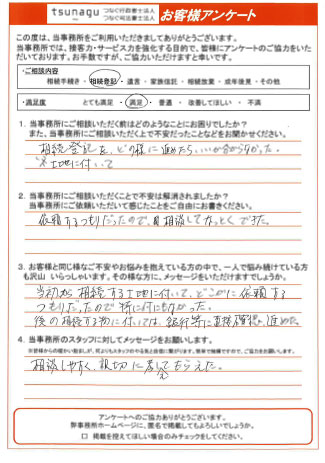 tsunagu つなぐ行政書士法人
つなぐ司法書士法人
お客様アンケート
この度は、当事務所をご利用いただきましてありがとうございます。
当事務所では、接客力・サービス力を強化する目的で、皆様にアンケートのご協力をいた
だいております。お手数ですが、ご協力いただけますと幸いです。
・ご相談内容
相続手続き・相続登記・遺言・家族信託・相続放棄・成年後見・その他
・満足度 とても満足・満足・普通・改善してほしい・不満
1. 当事務所にご相談いただく前はどのようなことにお困りでしたか？
また、当事務所にご相談いただく上で不安だったことなどをお聞かせください。
相続登記を、どの様に進めたらいいか分からなかった。
※土地に付いて
2. 当事務所にご相談いただくことで不安は解消されましたか？
当事務所にご依頼いただいて感じたことをご自由にお書きください。
依頼するつもりだったので、相談してなっとくできた。
3. お客様と同じ様なご不安やお悩みを抱えている方の中で、一人で悩み続けている方
も沢山いらっしゃいます。その様な方に、メッセージをいただけますでしょうか。
当初から相続する土地に付いて、どこかに依頼する
つもりだったので特に何もなかった。
後の相続する物に付いては、銀行等に直接確認し進めた。
4. 当事務所のスタッフに対してメッセージをお願いします。
相談しやすく、親切に差してもらえた。
アンケートへのご協力ありがとうございます。
弊事務所ホームページに、匿名で掲載してもよろしいでしょうか。
□ 掲載を控えてほしい場合のみチェックをしてください。